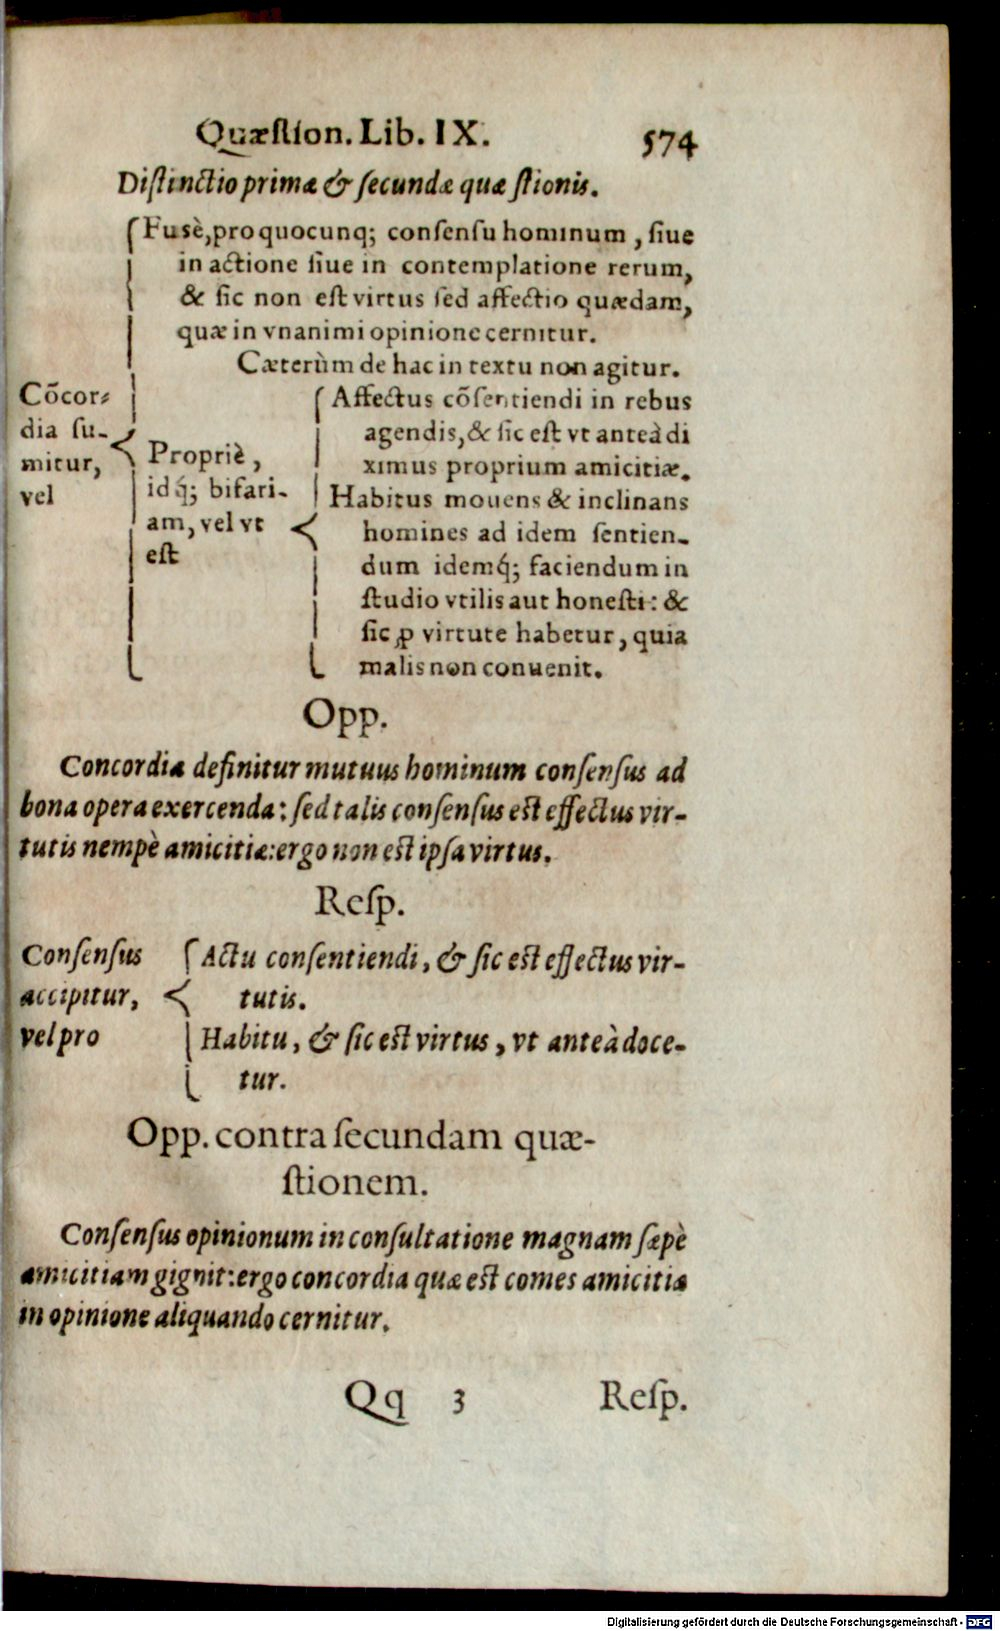 Quæſtion. Lib. IX. 574
Diſtinctio primæ & ſecundæ quæ ſtionis.
Fusè, pro quocunq; conſenſu hominum, ſiue
in actione ſiue in contemplatione rerum,
& ſic non eſt virtus ſed affectio quædam,
quæ in vnanimi opinione cernitur.
Cæterùm de hac in textu non agitur.
Cōcor⸗
dia ſu-
mitur,
vel
Propriè,
idq́; bifari-
am, vel vt
eſt
Affectus cōſentiendi in rebus
agendis, & ſic eſt vt anteà di
ximus proprium amicitiæ.
Habitus mouens & inclinans
homines ad idem ſentien-
dum idemq́; faciendum in
ſtudio vtilis aut honeſti: &
ſic ꝓ virtute habetur, quia
malis non conuenit.
Opp.
Concordia definitur mutuus hominum conſenſus ad
bona opera exercenda: ſed talis conſenſus eſt effectus vir-
tutis nempè amicitiæ: ergo non eſt ipſa virtus.
Reſp.
Conſenſus
accipitur,
vel pro
Actu conſentiendi, & ſic eſt effectus vir-
tutis.
Habitu, & ſic eſt virtus, vt anteà doce-
tur.
Opp. contra ſecundam quæ-
ſtionem.
Conſenſus opinionum in conſultatione magnam ſæpè
amicitiam gignit: ergo concordia quæ eſt comes amicitiæ
in opinione aliquando cernitur.
Qq 3 Reſp.
Digitalisierung gefördert durch die Deutsche Forschungsgemeinschaft - DFG